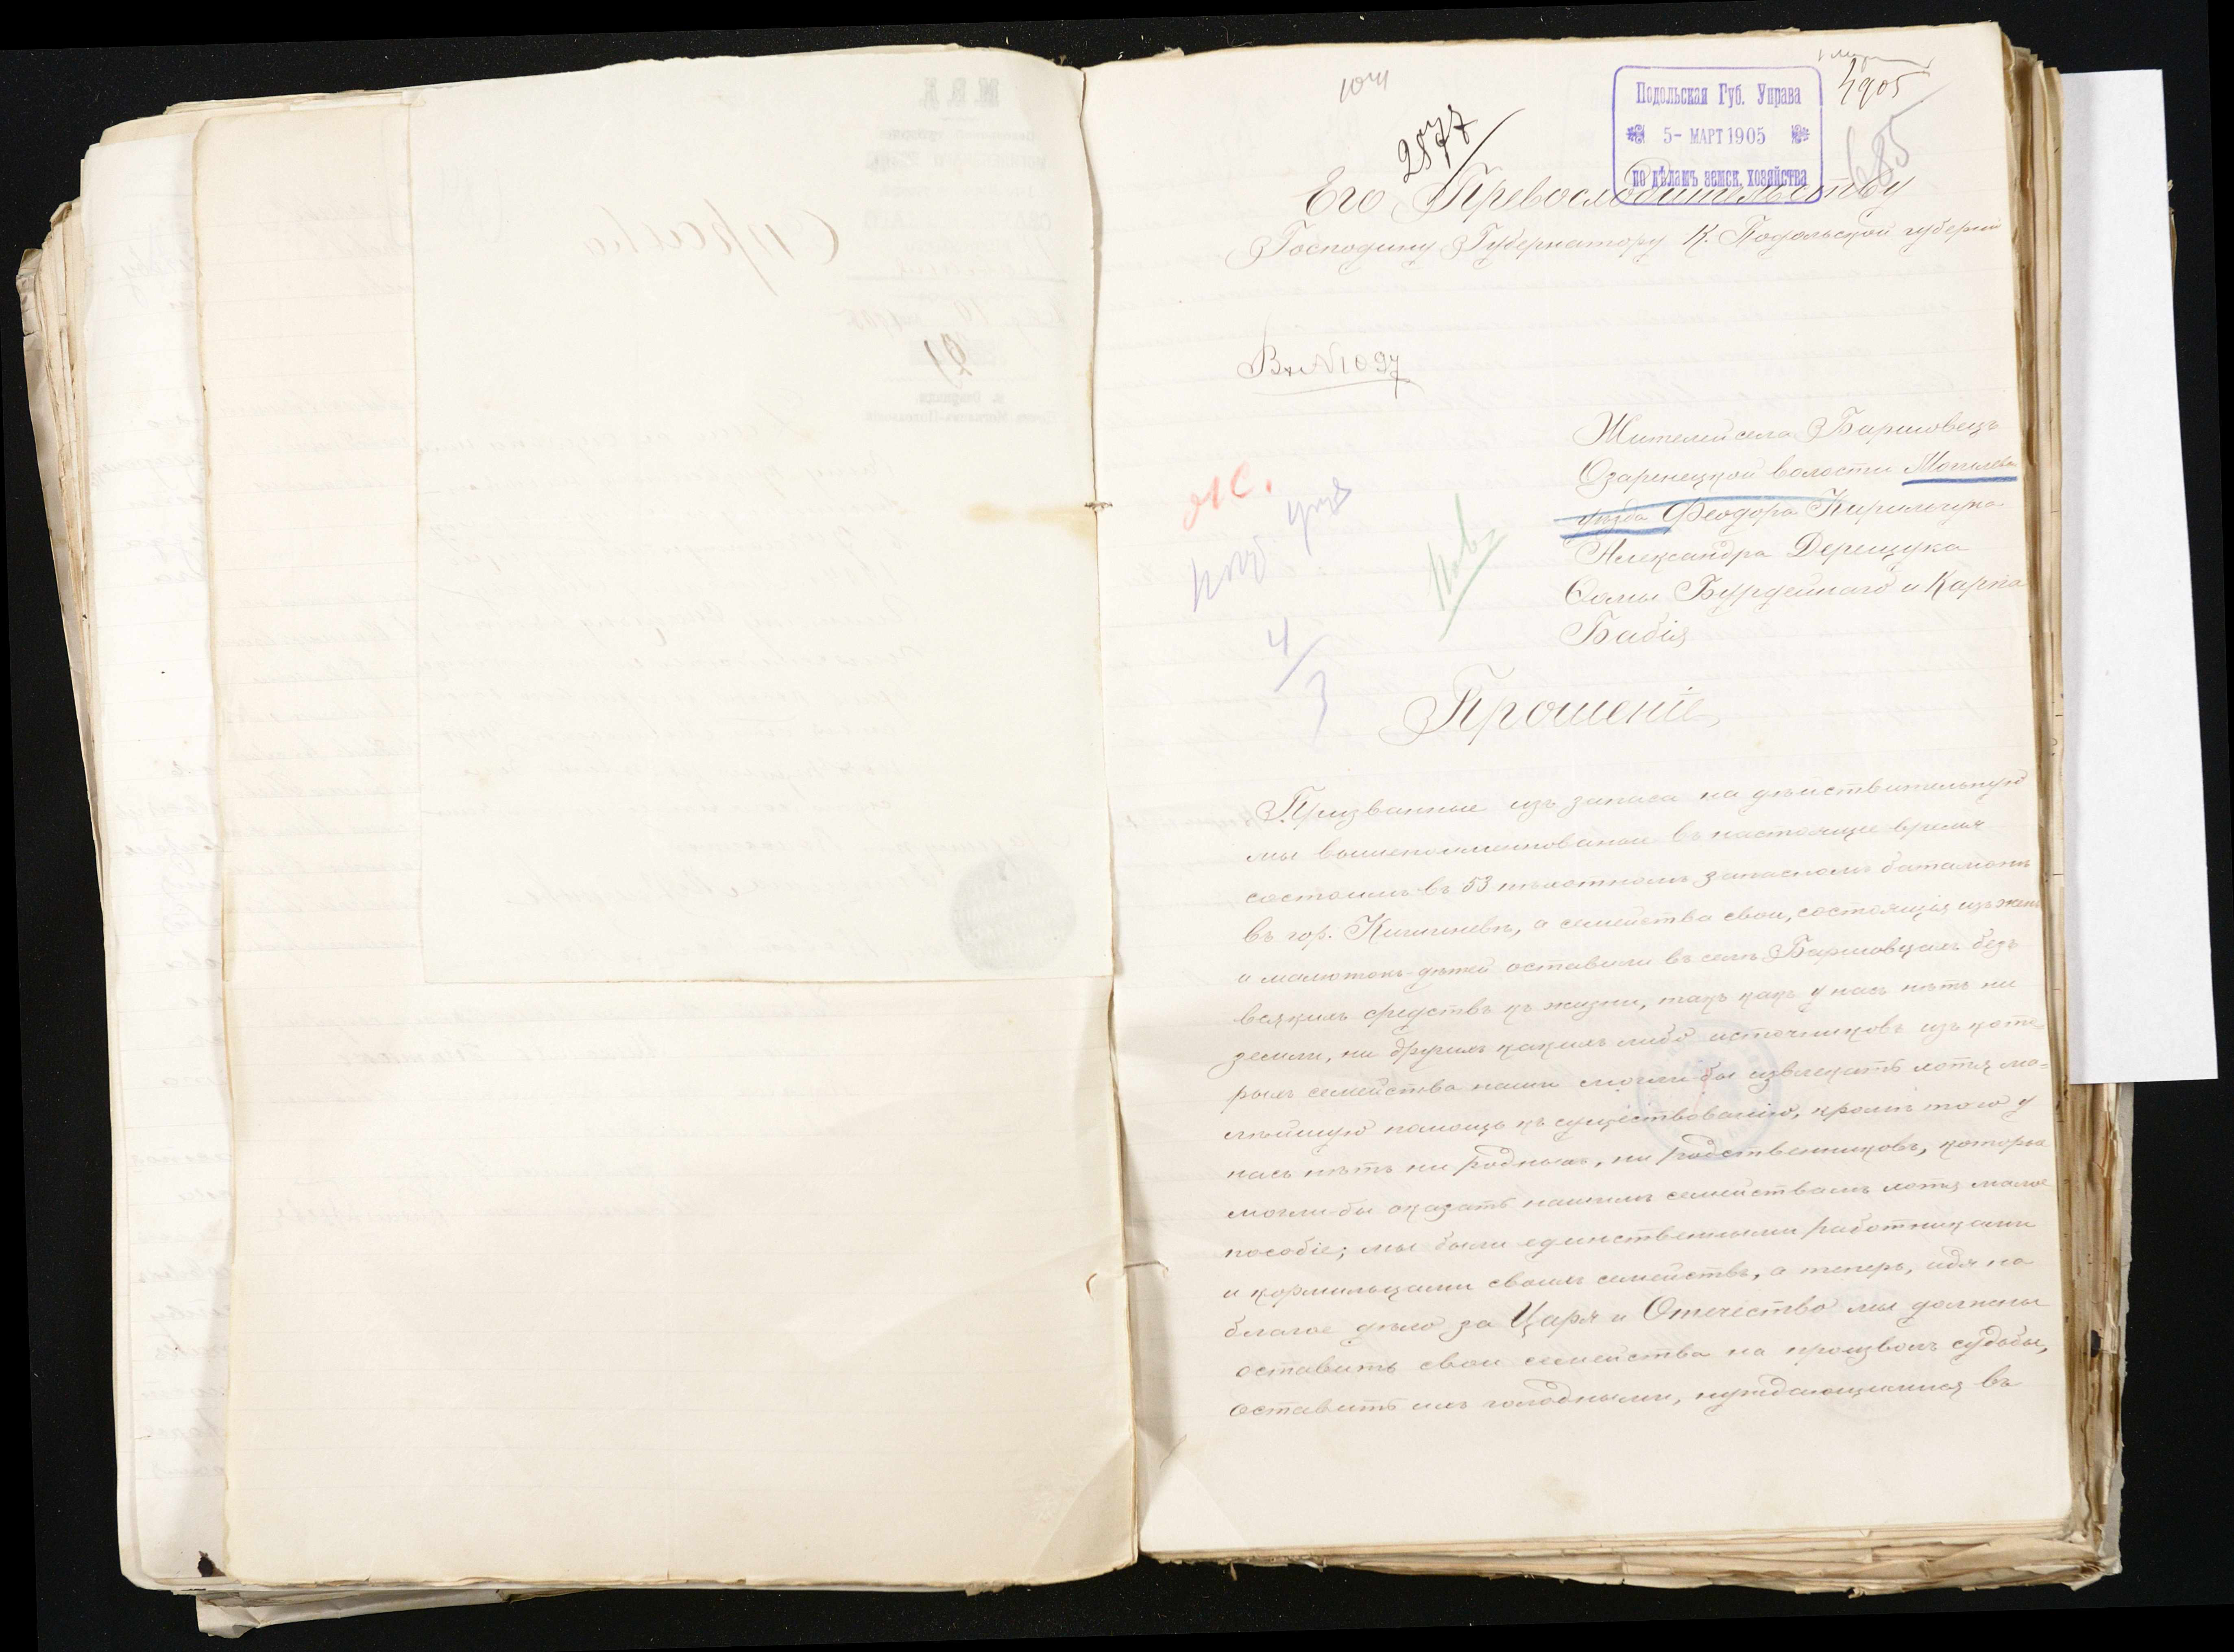 1041
2877
Подольская Губ. Управа
5- МАРТ 1905
по дѣламъ земск. хозяйства
4905
685
Его Превосходительству
Господину Губернатору К. Подольской губерніи
Вх. № 1097
Жителей села Баршовецъ
Озаринецкой волости Могилев.
уѣзда Феодора Кирильчука
Александра Дерещука
Фомы Бурдейнаго и Карпа
Бабія
4/3
Прошеніе
Призванные изъ запаса на дѣйствительную
мы вышепоименованои въ настоящее время
состоимъ въ 53 пѣхотномъ запасномъ баталіонѣ
въ гор. Кишиневѣ, а семейства свои, состоящія изъ женъ
и малютокъ-дѣтей оставили въ селѣ Баршовцахъ безъ
всякихъ средствъ къ жизни, такъ какъ у насъ нѣтъ ни
земли, ни другихъ какихъ либо источниковъ изъ кото-
рыхъ семейства наши могли-бы извлекать хотя ма-
лѣйшую помощь къ существованію, кромѣ того у
насъ нѣтъ ни родныхъ, ни родственниковъ, которые
могли-бы оказать нашимъ семействамъ хотя малое
пособіе; мы были единственными работниками
и кормильцами своихъ семействъ, а теперь, идя на
благое дѣло за Царя и Отечество мы должны
оставить свои семейства на произволъ судьбы,
оставить ихъ голодными, нуждающимися въ